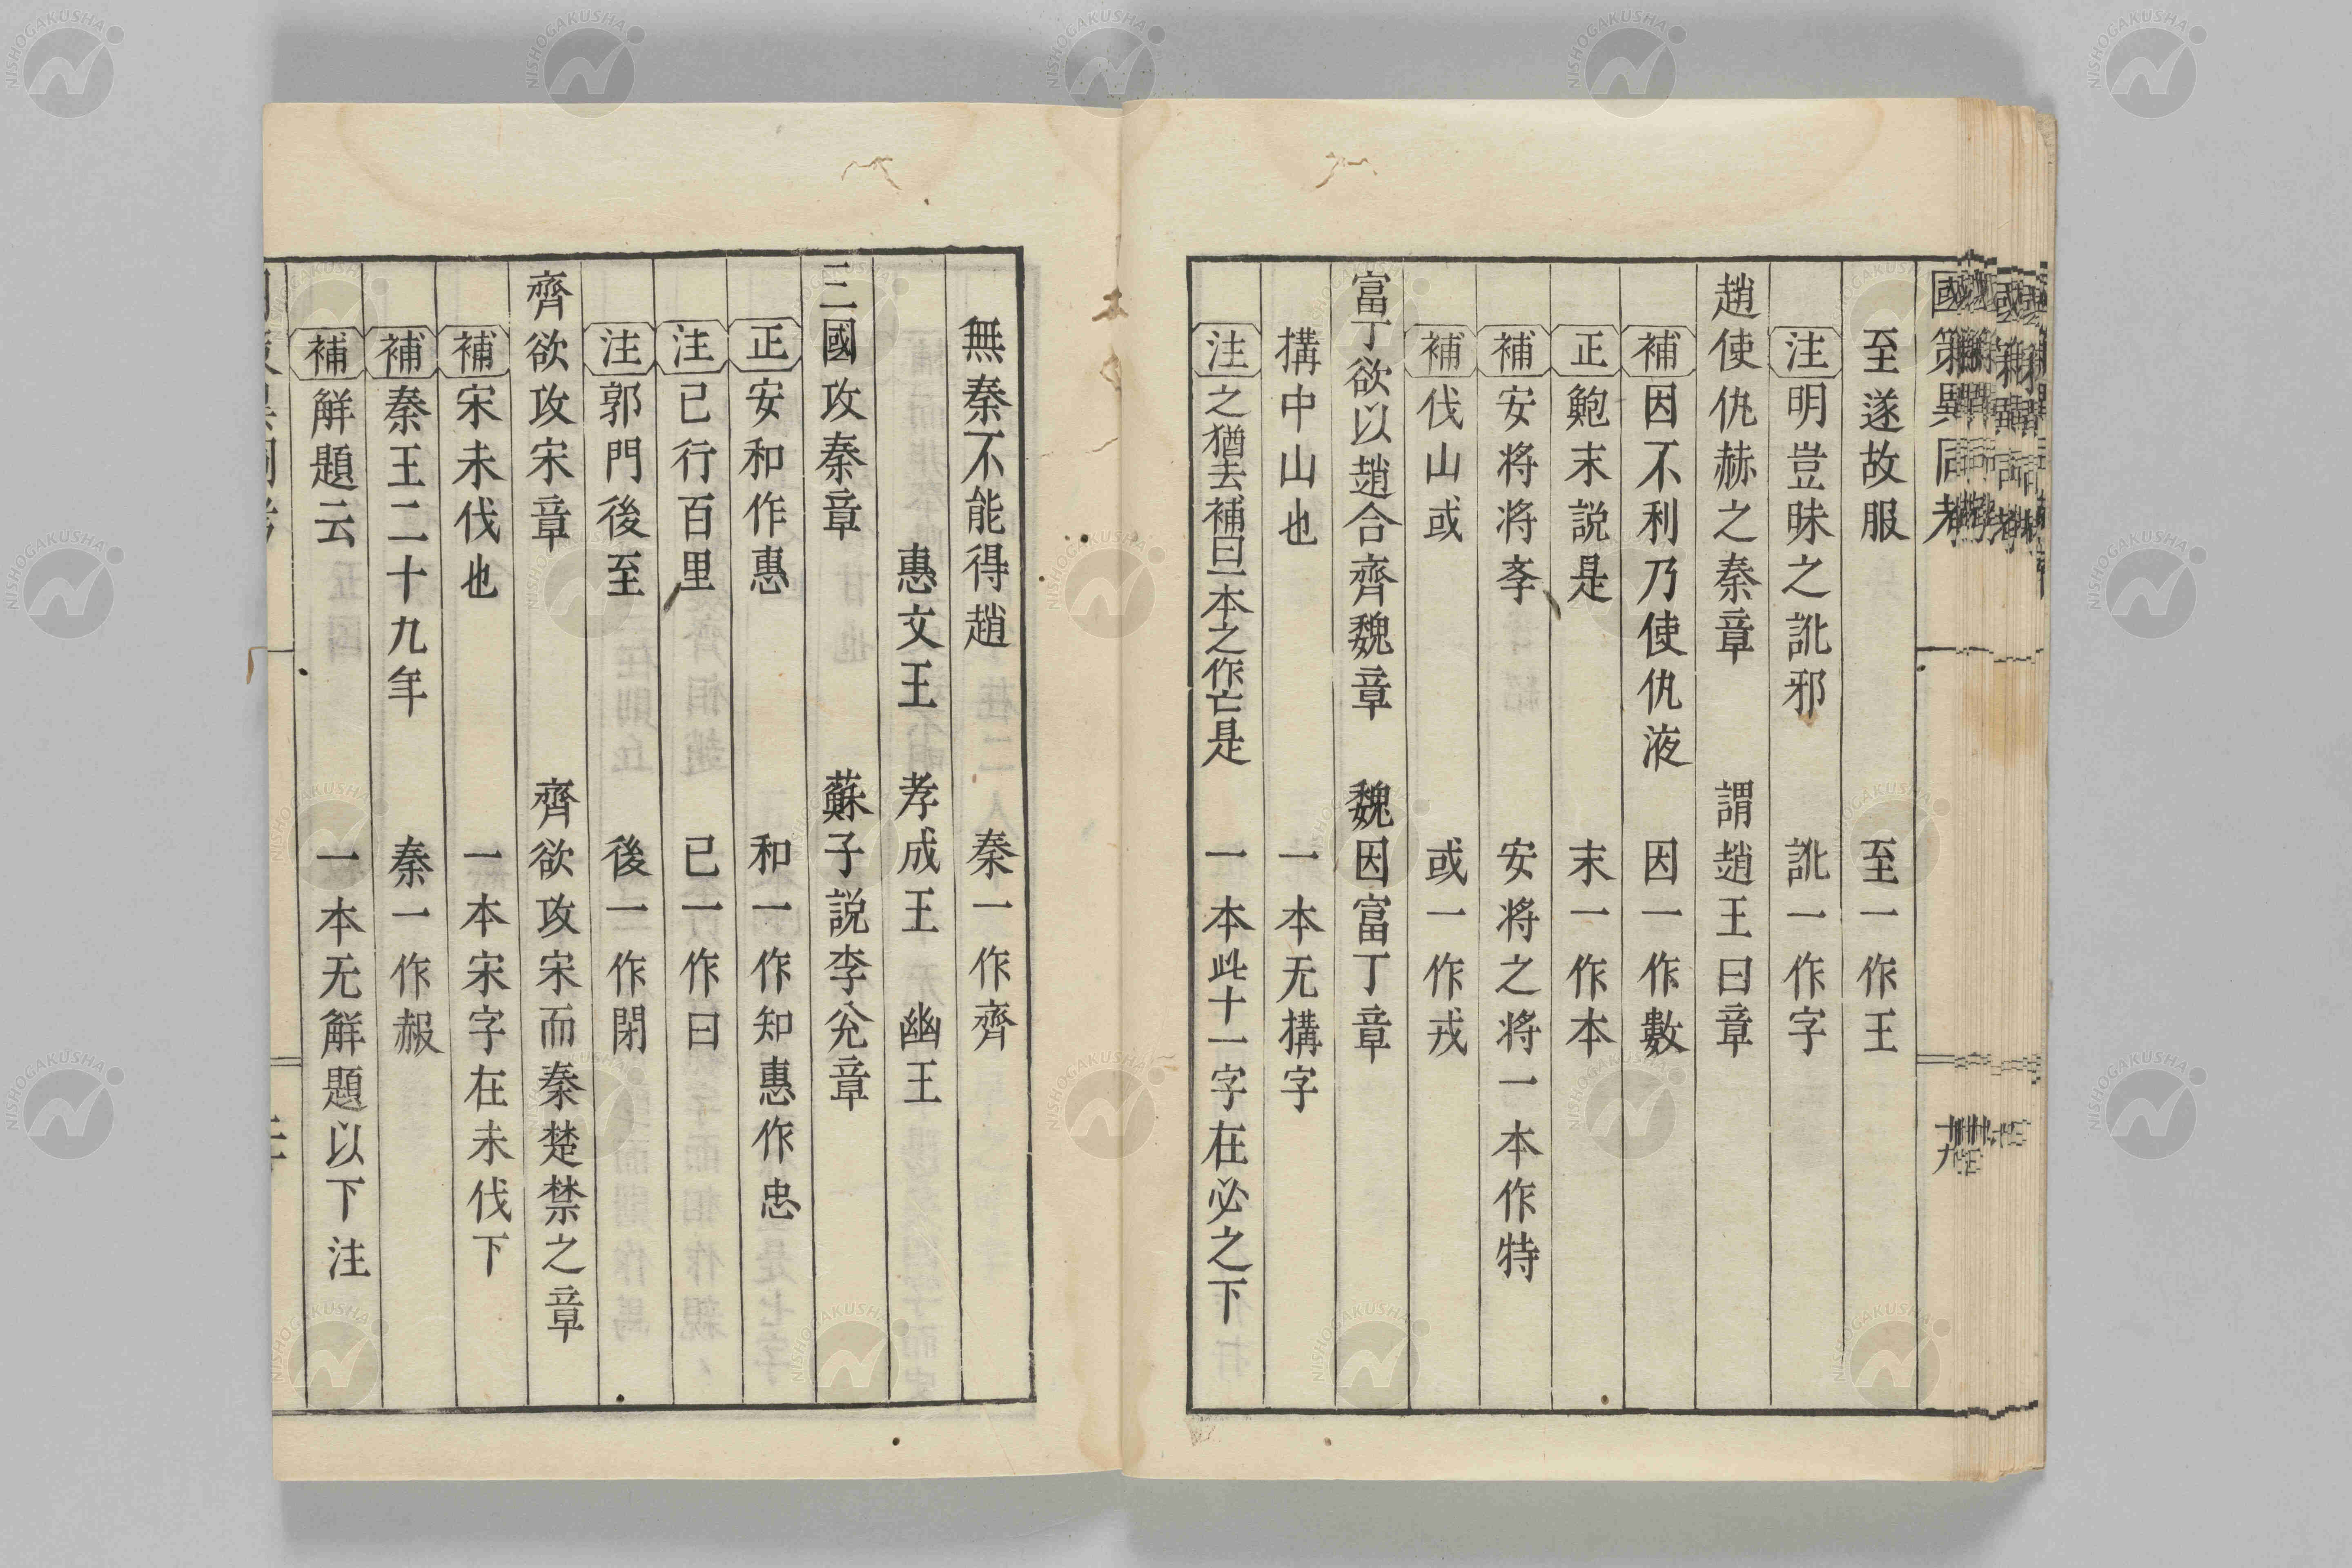 國策異同考
至遂故服　至一作王
注 明豈昧之訿邪　訿一作字
趙使仇赫之秦章　謂趙王曰章
補 因不利乃使仇液　因一作數
正 鮑末説是　末一作本
補 安将将李　安将之将一本作特
補 伐山或　或一作戎
富丁欲以趙合齊魏章　魏因富丁章
搆中山也　一本无搆字
注 之猶去補曰一本之作亡是　一本此十一字在必之下
無秦不能得趙　秦一作齊
惠文王　孝成王　幽王
三國攻秦章　蘇子説李兊章
正 安和作惠　和一作知惠作忠
注 已行百里　已一作曰
注 郭門後至　後一作閉
齊欲攻宋章　齊欲攻宋而秦楚禁之章
補 宋未伐也　一本宋字在未伐下
補 秦王二十九年　秦一作赧
補 解題云　一本无解題以下注
NISHOGAKUSHA